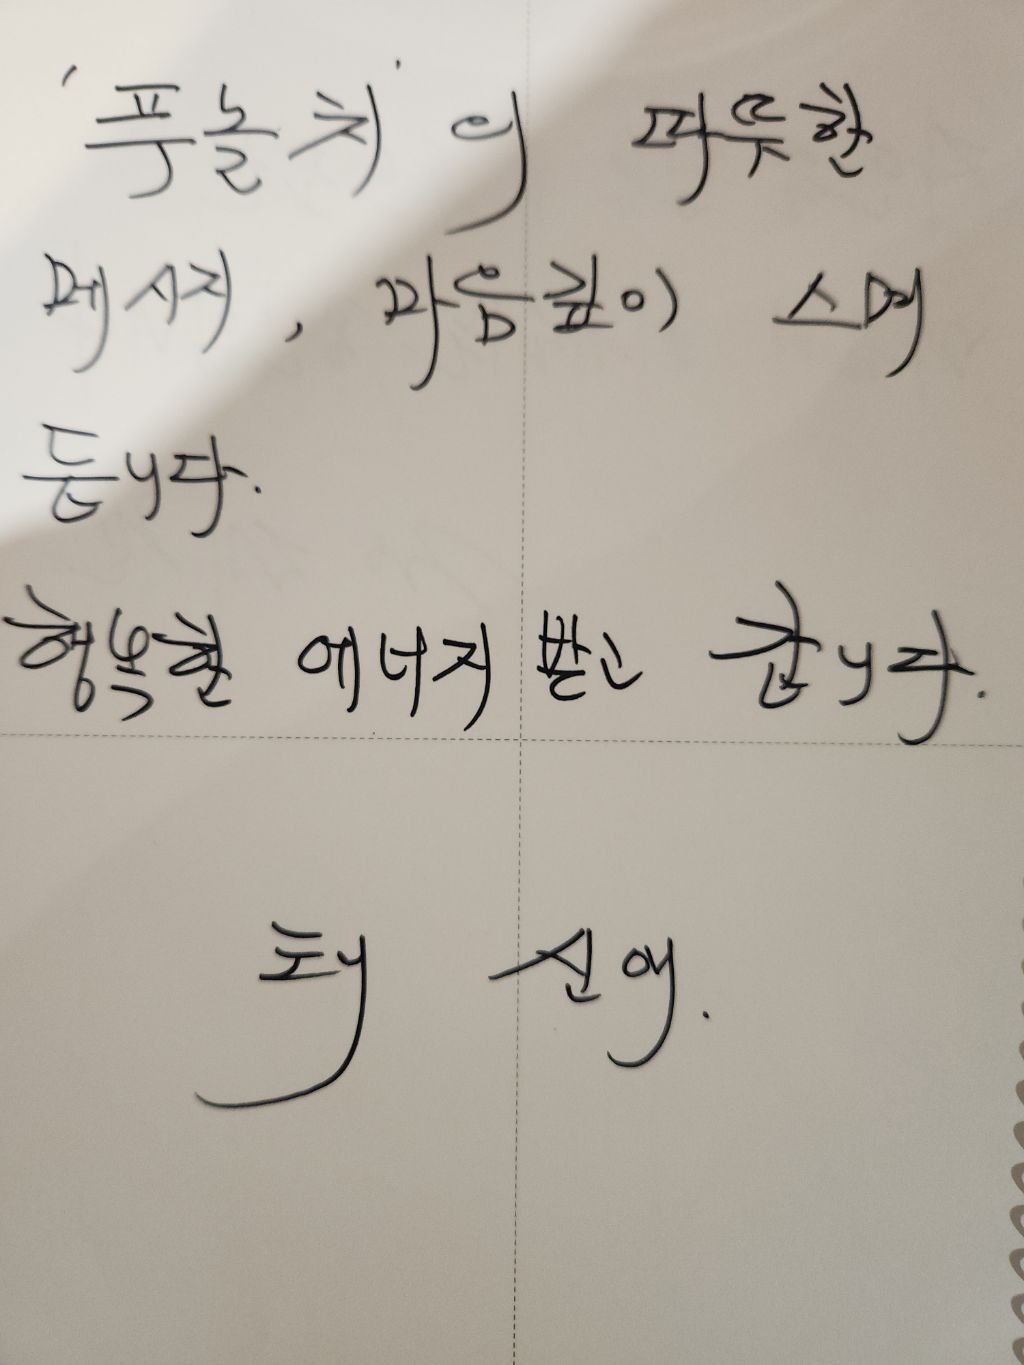 '푸눌치'의 따뜻한
메시지, 마음깊이 스며
듭니다.
행복한 에너지 받고 갑니다.
태 신애.